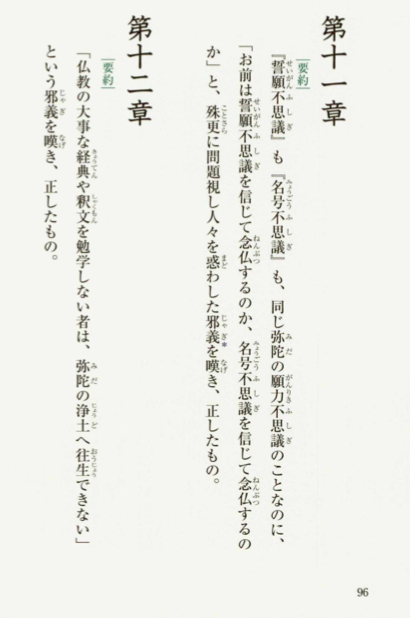 第十一章
要約
『誓願不思議』も『名号不思議』も、同じ弥陀の願力不思議のことなのに、
「お前は誓願不思議を信じて念仏するのか、名号不思議を信じて念仏するの
か」と、殊更に問題視し人々を惑わした邪義*を嘆き、正したもの。
第十二章
要約
「仏教の大事な経典や釈文を勉学しない者は、弥陀の浄土へ往生できない」
という邪義を嘆き、正したもの。
96